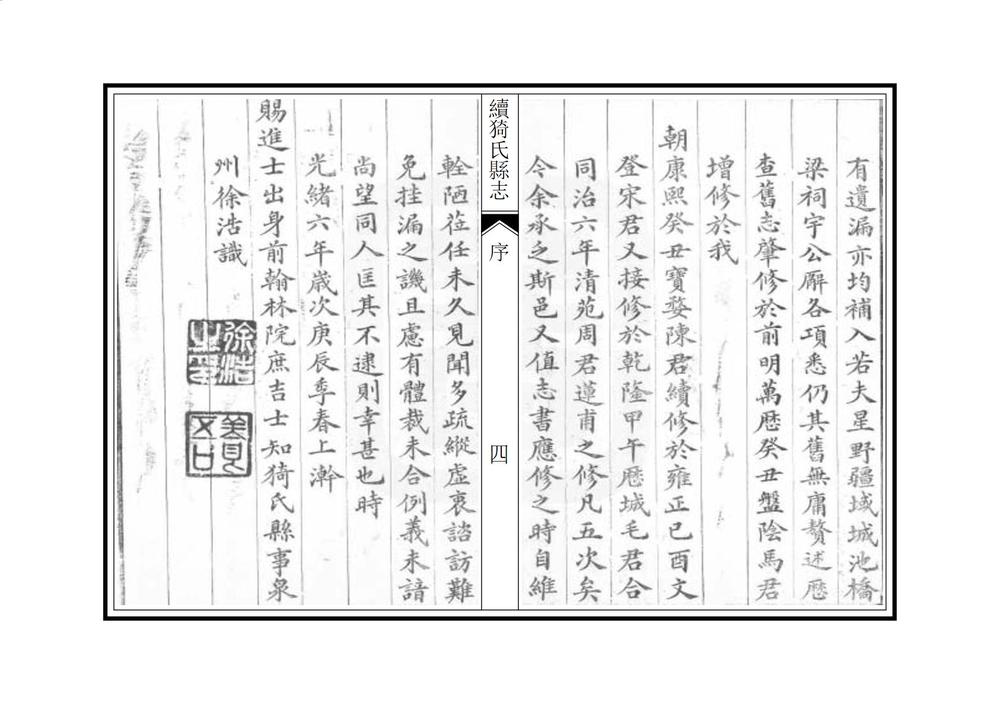 有遺漏亦均補入若夫星野疆域城池橋
梁祠宇公廨各項悉仍其舊無庸贅述歷
查舊志肇修於前明萬歷癸丑盤陰馬君
增修於我
朝康熙癸丑寶婺陳君續修於雍正己酉文
登宋君又接修於乾隆甲午歷城毛君合
同治六年清苑周君蓮甫之修凡五次矣
令余承乏斯邑又值志書應修之時自維
續猗氏縣志
序
四
輇陋蒞任未久見聞多疏縱虛衷諮訪難
免挂漏之譏且慮有體裁未合例義未諳
尚望同人匡其不逮則幸甚也時
光緒六年歲次庚辰季春上澣
賜進士出身前翰林院庶吉士知猗氏縣事泉
州徐浩識
徐浩之印